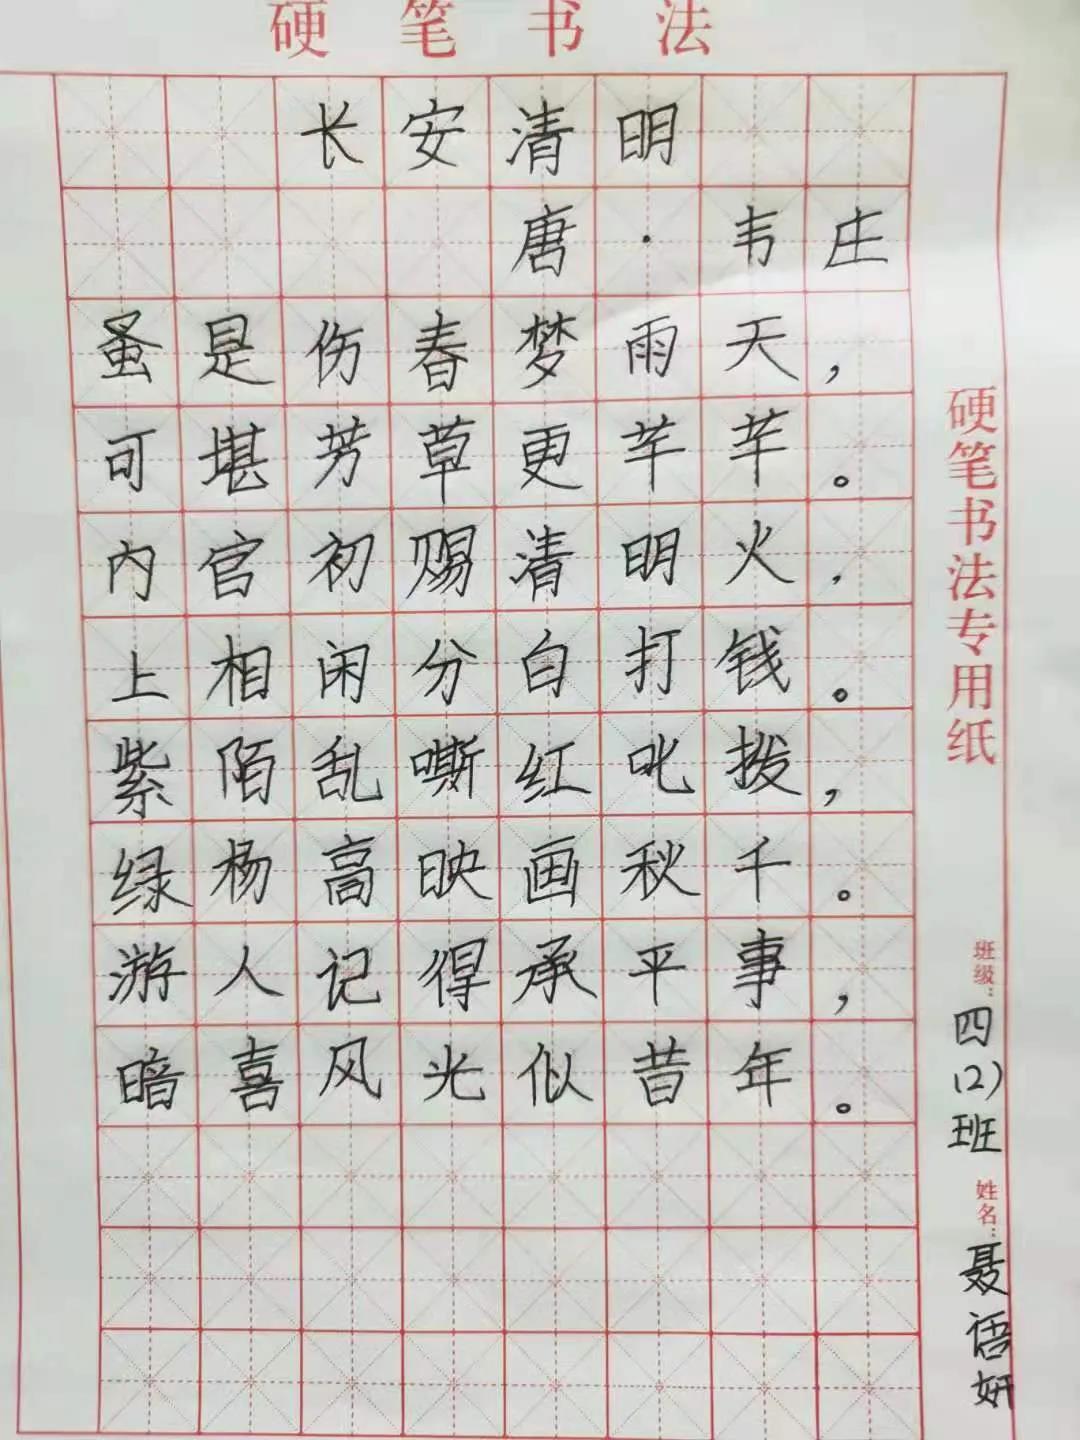 硬笔书法
长安清明
唐·韦庄
蚤是伤春梦雨天，
可堪芳草更芊芊。
内官初赐清明火，
上相闲分白打钱。
紫陌乱嘶红叱拨，
绿杨高映画秋千。
游人记得承平事，
暗喜风光似昔年。
硬笔书法专用纸
班级：四(2)班
姓名：聂语妍